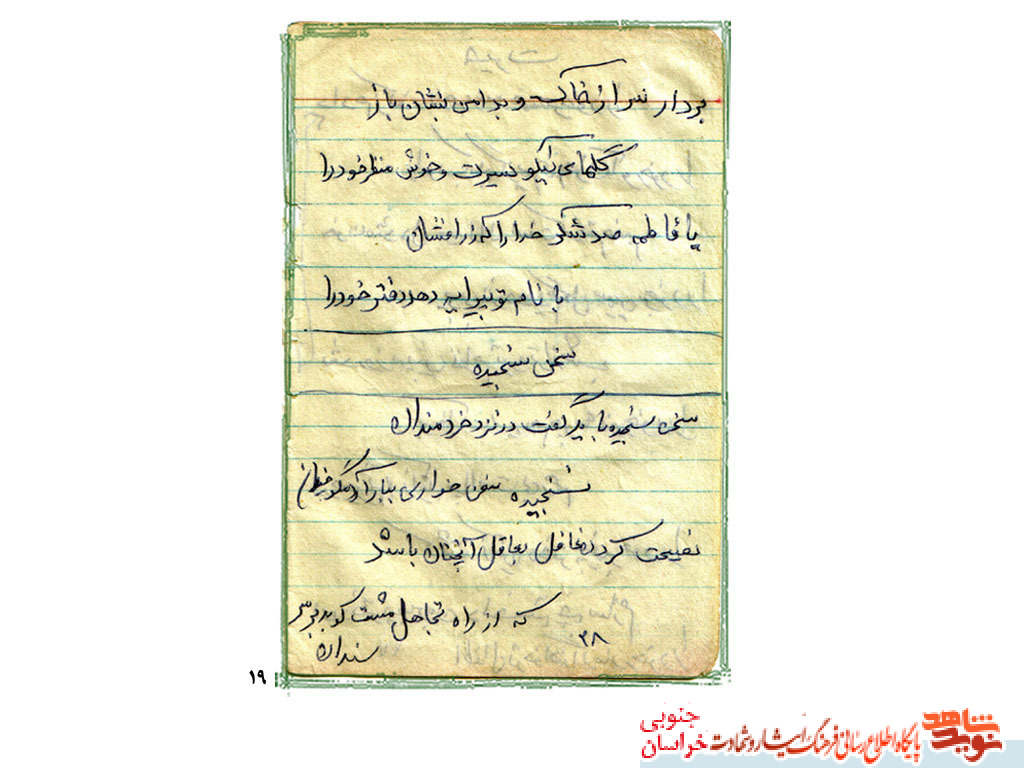 بردار سر از خاک و بدامن بنشان باز
گلهای نیکو سیرت و خوش منظر خود را
یا فاطمه صد شکر خدا را که زر افشان
با نام تو پیرایه دهد دفتر خود را
سخن سنجیده
سخن سنجیده باید گفت در نزد خردمندان
نسنجیده سخن خواری ببار آرد مگو
نصیحت کردن غافل بعاقل آنچنان باشد
که از راه تجاهل مشت کوبد بر سر
سندان
۳۸
۱۹
نوید شاهد
پایگاه اطلاع رسانی فرهنگ ایثار و شهادت
جنوبی
خراسان